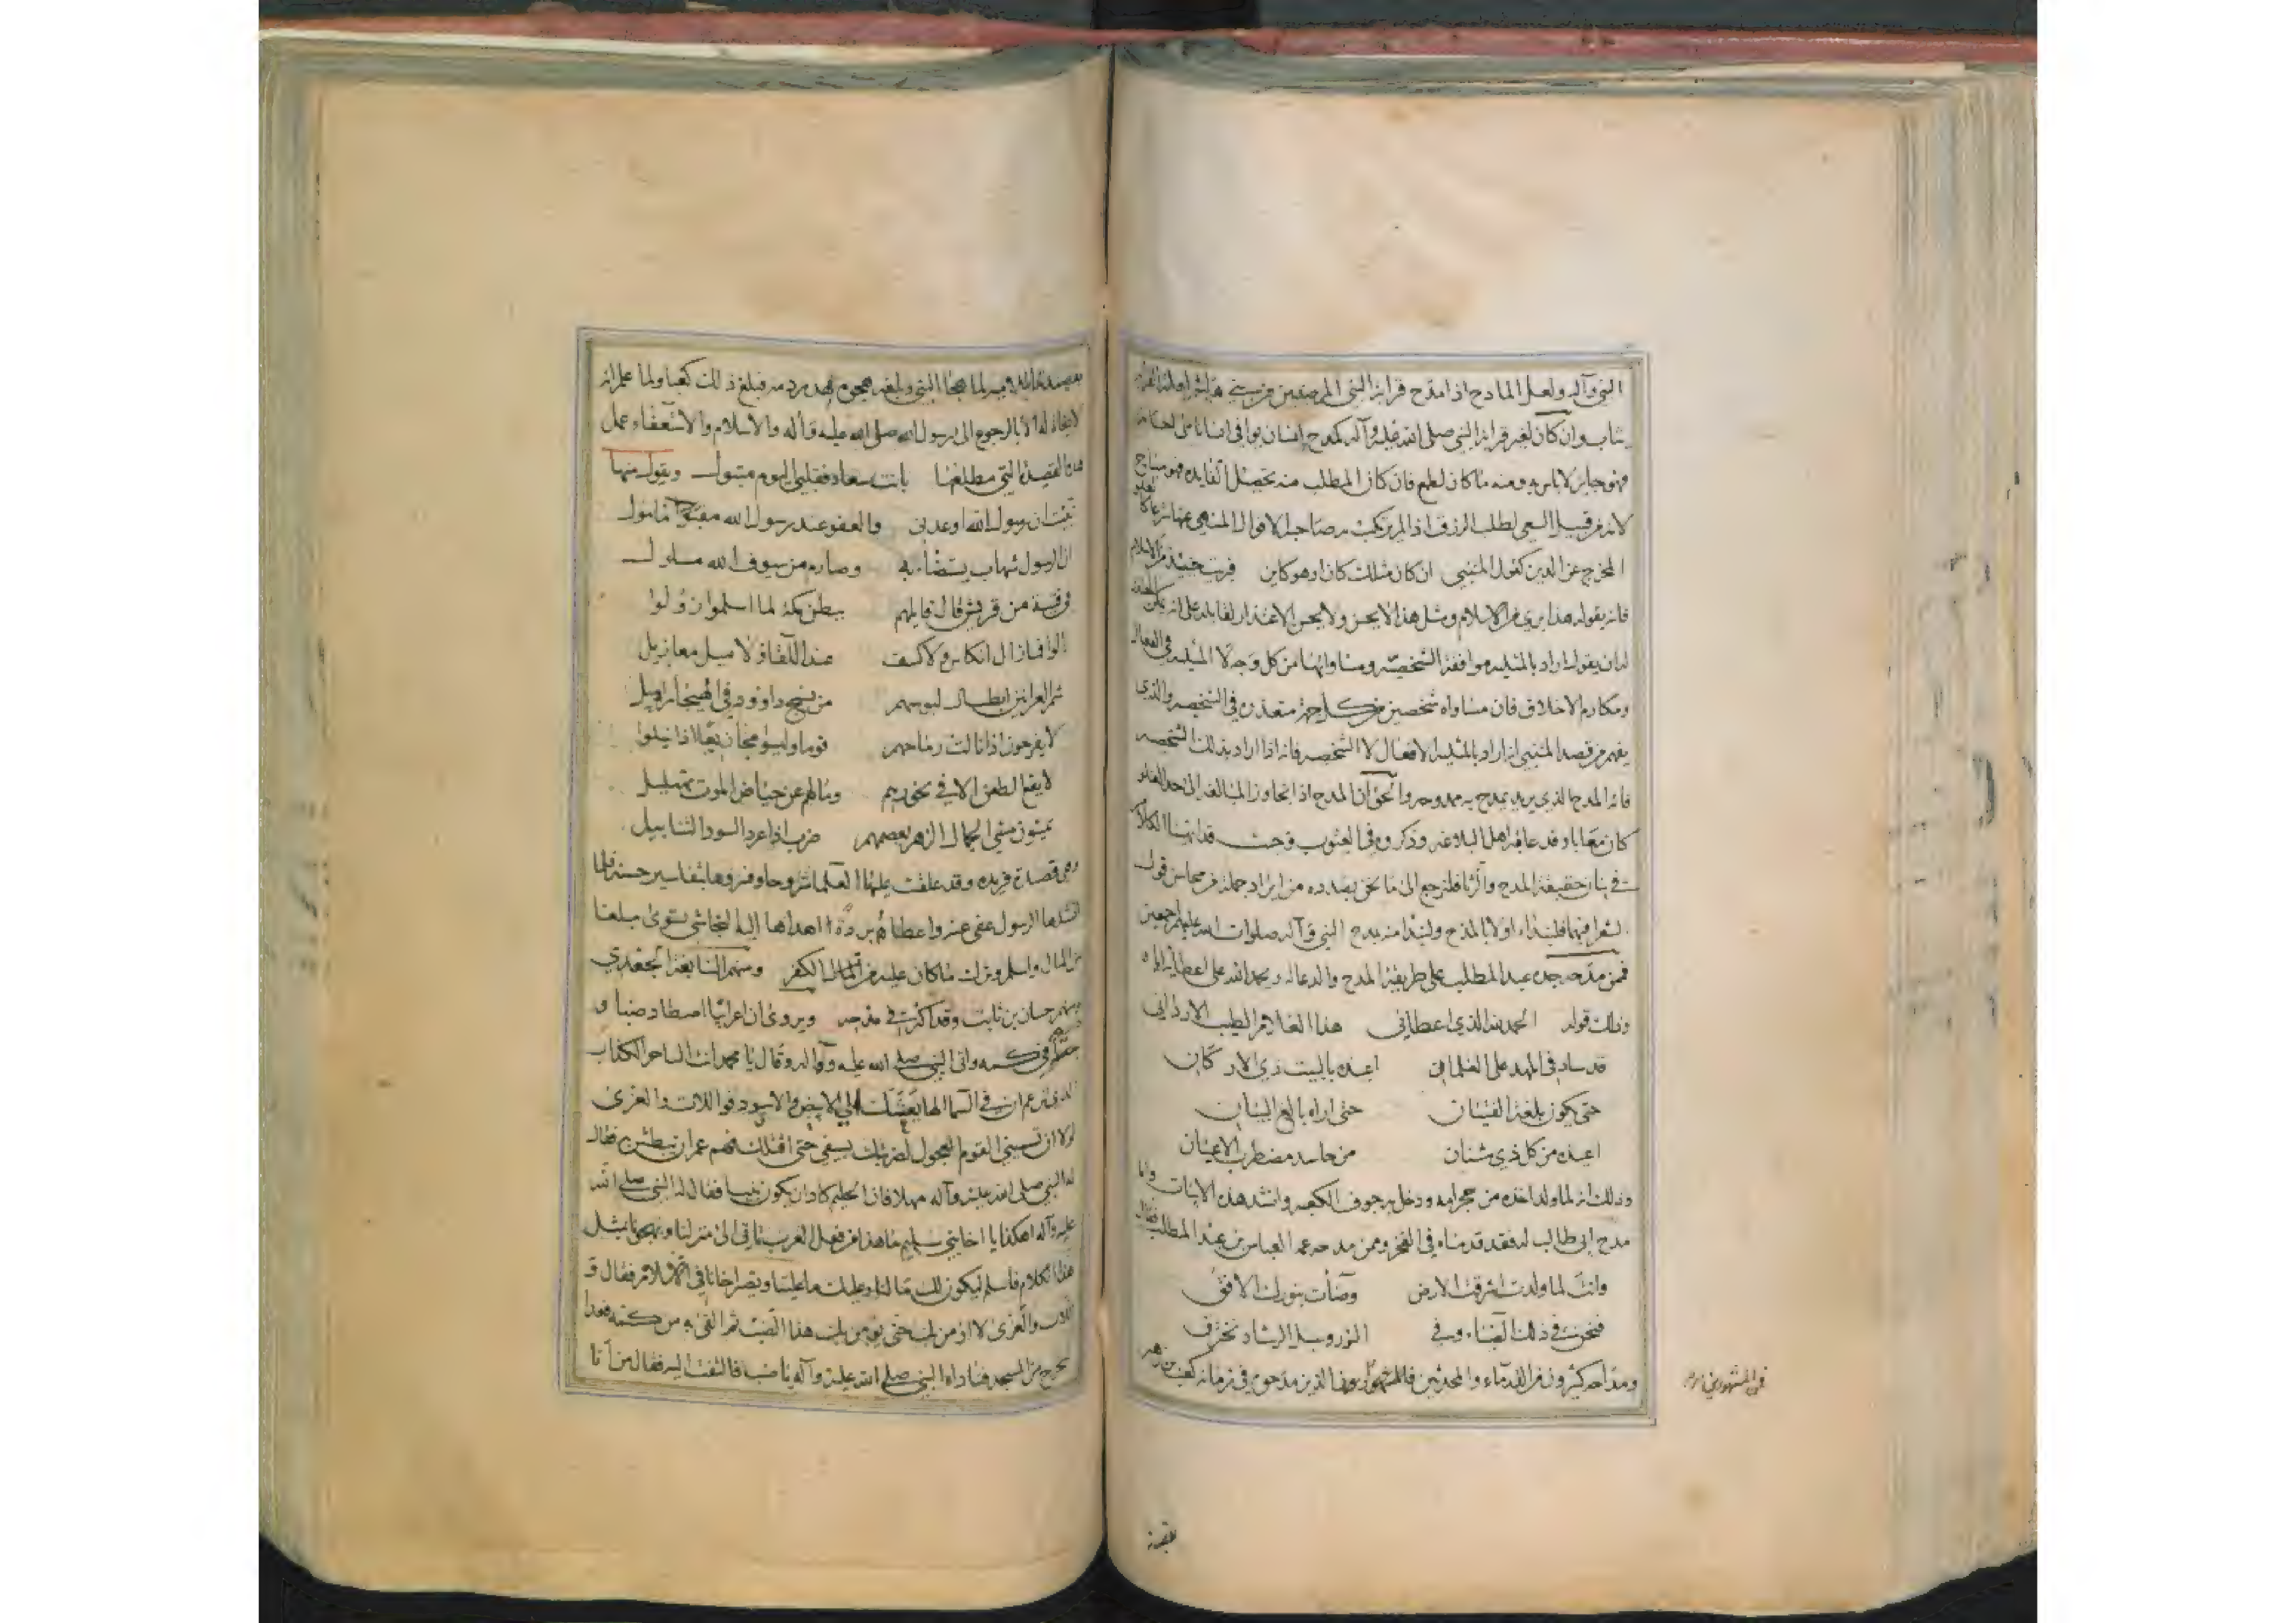 النبي وآله ولعل المادح اذا مدح قرابة النبي المرضيين من بني هاشم
يثاب وان كان لغير قرابة النبي صلى الله عليه وآله كمدح انسان
فهو جايز لا باس به ومنه ما كان لطمع فان كان المطلب منه تحصيل الفايده فهو مباح
لانه من قبيل السعي لطلب الرزق اذا لم يرتكب صاحبه الاقوال المنهي عنها شرعا
المخرج عن الدين كقول المتنبي ان كان مثلك كان او هو كاين فبرئت حينئذ من الاسلام
فانه بقوله هذا بري من الاسلام ومثل هذا لا يحسن ولا يحسن الاعتذار لقايله على انه يمكن
ان يقول اراد بالمثليه موافقة الشخصيه ومساواتها من كل وجه لا المثليه في الفعال
ومكارم الاخلاق فان مساواه شخصين من كل جهة متعذره في الشخصيه والذي
يفهم من قصد المتنبي انه اراد بالمثليه الافعال لا الشخصيه فانه اذا اراد بذلك الشخصيه
فاته المدح الذي يريد يمدح به ممدوحه والحق ان المدح اذا تجاوز المبالغه الى حد الغلو
كان معابا وقد عابه اهل البلاغه وذكروه في العيوب وحيث قد انهينا الكلام
في بيان حقيقة المدح فلنرجع الى ما نحن بصدده من ايراد جملة من محاسن قول
الشعرا فيها فلنبداء اولا بالمدح ولنبدا منه بمدح النبي وآله صلوات الله عليهم اجمعين
فمن مدحه جده عبد المطلب على طريقة المدح والدعا له ويحمد الله على اعطائه اياه
وذلك قوله الحمد لله الذي اعطاني هذا الغلام الطيب الاردان
قد ساد في المهد على الغلمان اعيذه بالبيت ذي الاركان
حتى يكون بلغة الفتيان حتى اراه بالغ البنيان
اعيذه من كل ذي شنان من حاسد مضطرب الاعيان
وذلك انه لما ولد اخذه من حجر امه ودخل به جوف الكعبه وانشد هذه الابيات واما
مدح ابي طالب له فقد قدمناه في الفخر وممن مدحه عمه العباس بن عبد المطلب فقال
وانت لما ولدت اشرقت الارض وضأت بنورك الافق
فنحن في ذلك الضياء وفي النور وسبل الرشاد نخترق
ومداحه كثيرون من القدماء والمحدثين الذين مدحوه في زمانه كعب بن زهير
لما هجا النبي وبلغه هجوه هدر دمه فبلغ ذلك كعبا ولما علم انه
لا نجاة له الا بالرجوع الى رسول الله صلى الله عليه وآله والاسلام والاستعفاء عمل
هذه القصيدة التي مطلعها بانت سعاد فقلبي اليوم متبول ويقول منها
نبئت ان رسول الله اوعدني والعفو عند رسول الله مامول
ان الرسول شهاب يستضاء به وصارم من سيوف الله مسلول
في فتية من قريش قال قايلهم ببطن مكة لما اسلموا زولوا
زالوا فما زال انكاس ولا كشف عند اللقاء ولا ميل معازيل
شم العرانين ابطال لبوسهم من نسج داوود في الهيجا سرابيل
لا يفرحون اذا نالت رماحهم قوما وليسوا مجازيعا اذا نيلوا
لا يقع الطعن الا في نحورهم وما لهم عن حياض الموت تهليل
يمشون مشي الجمال الزهر يعصمهم ضرب اذا عرد السود التنابيل
وهي قصيدة فريده وقد علقت عليها العلما شروحا وفسروها بتفاسير حسنة فلما
انشدها الرسول عفى عنه واعطاه بردة اهداها اليه النجاشي تسوى مبلغا
من المال واسلم وترك ما كان عليه من الكفر ومنهم النابغة الجعدي
ومنهم حسان بن ثابت وقد اكثر في مدحه ويروى ان اعرابيا اصطاد ضبا و
في كمه واتى النبي صلى الله عليه وآله وقال يا محمد انت الساحر الكذاب
الذي تزعم ان في السما الها بعثك الى الابيض والاسود فواللات والعزى
لولا ان تسميني القوم العجول لضربتك بسيفي حتى اقتلك فهم عمر ان يبطش به فقال
له النبي صلى الله عليه وآله مهلا فان الحليم كاد ان يكون نبيا فقال له النبي صلى الله
عليه وآله اهكذا يا اخا بني سليم ما هذا من فعل العرب تاتي الى منزلنا وتهجونا بمثل
هذا الكلام فاسلم ليكون لك ما لنا وعليك ما علينا وتصير اخانا في الاسلام فقال و
اللات والعزى لا اومن بك حتى يومن بك هذا الضب ثم القى به من كمه فعدا
يخرج من المسجد فناداه النبي صلى الله عليه وآله يا ضب فالتفت اليه فقال من انا